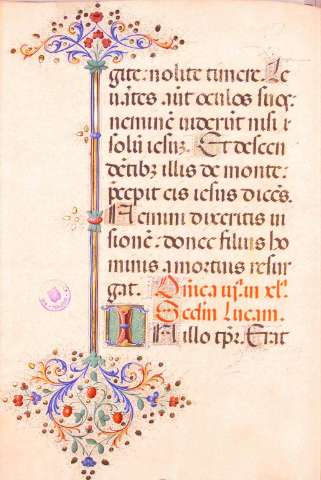 gite: nolite timere. Le
uātes aūt oculos suos:
neminē uiderūt nisi i
solū iesuȝ. Et descen
dētibȝ illis de monte:
p̄cepit eis iesus dicēs.
Nemini dixeritis ui
sionē: donec filius ho
minis a mortuis resur
gat. Dn̄ica iij. in xl.
Secd̄m Lucam.
IN illo tpr̄. Erat